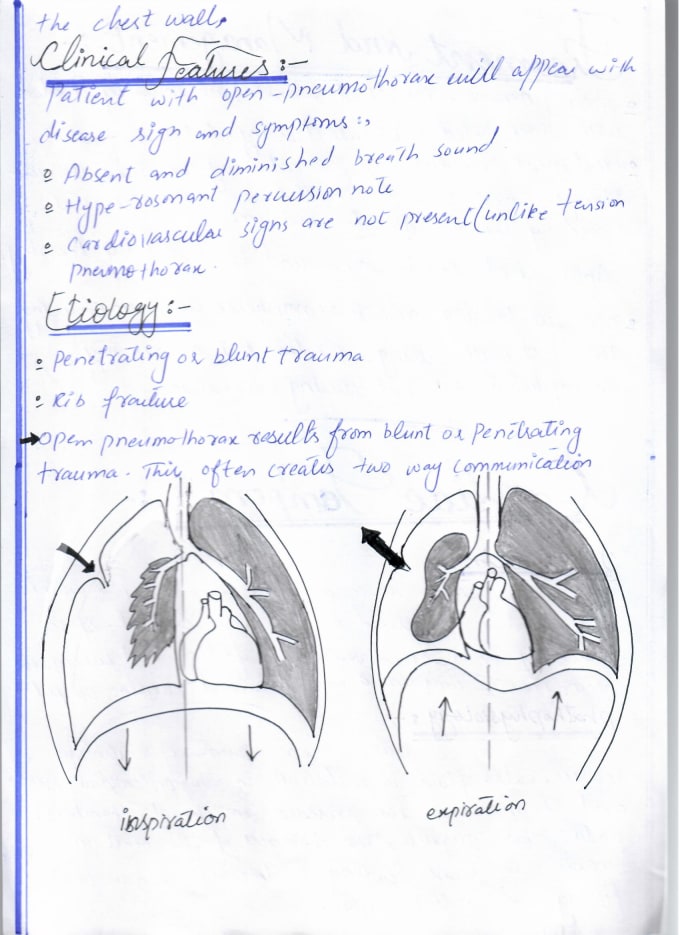 the chest wall.
Clinical Features:-
Patient with open-pneumothorax will appear with
disease sign and symptoms:,
Absent and diminished breath sound
Hype-rosonant percussion note
Cardiovascular signs are not present (unlike tension
pneumothorax.
Etiology:-
Penetrating or blunt trauma
Rib fracture
Open pneumothorax results from blunt or penetrating
trauma. This often creates two way communication
inspiration
expiration